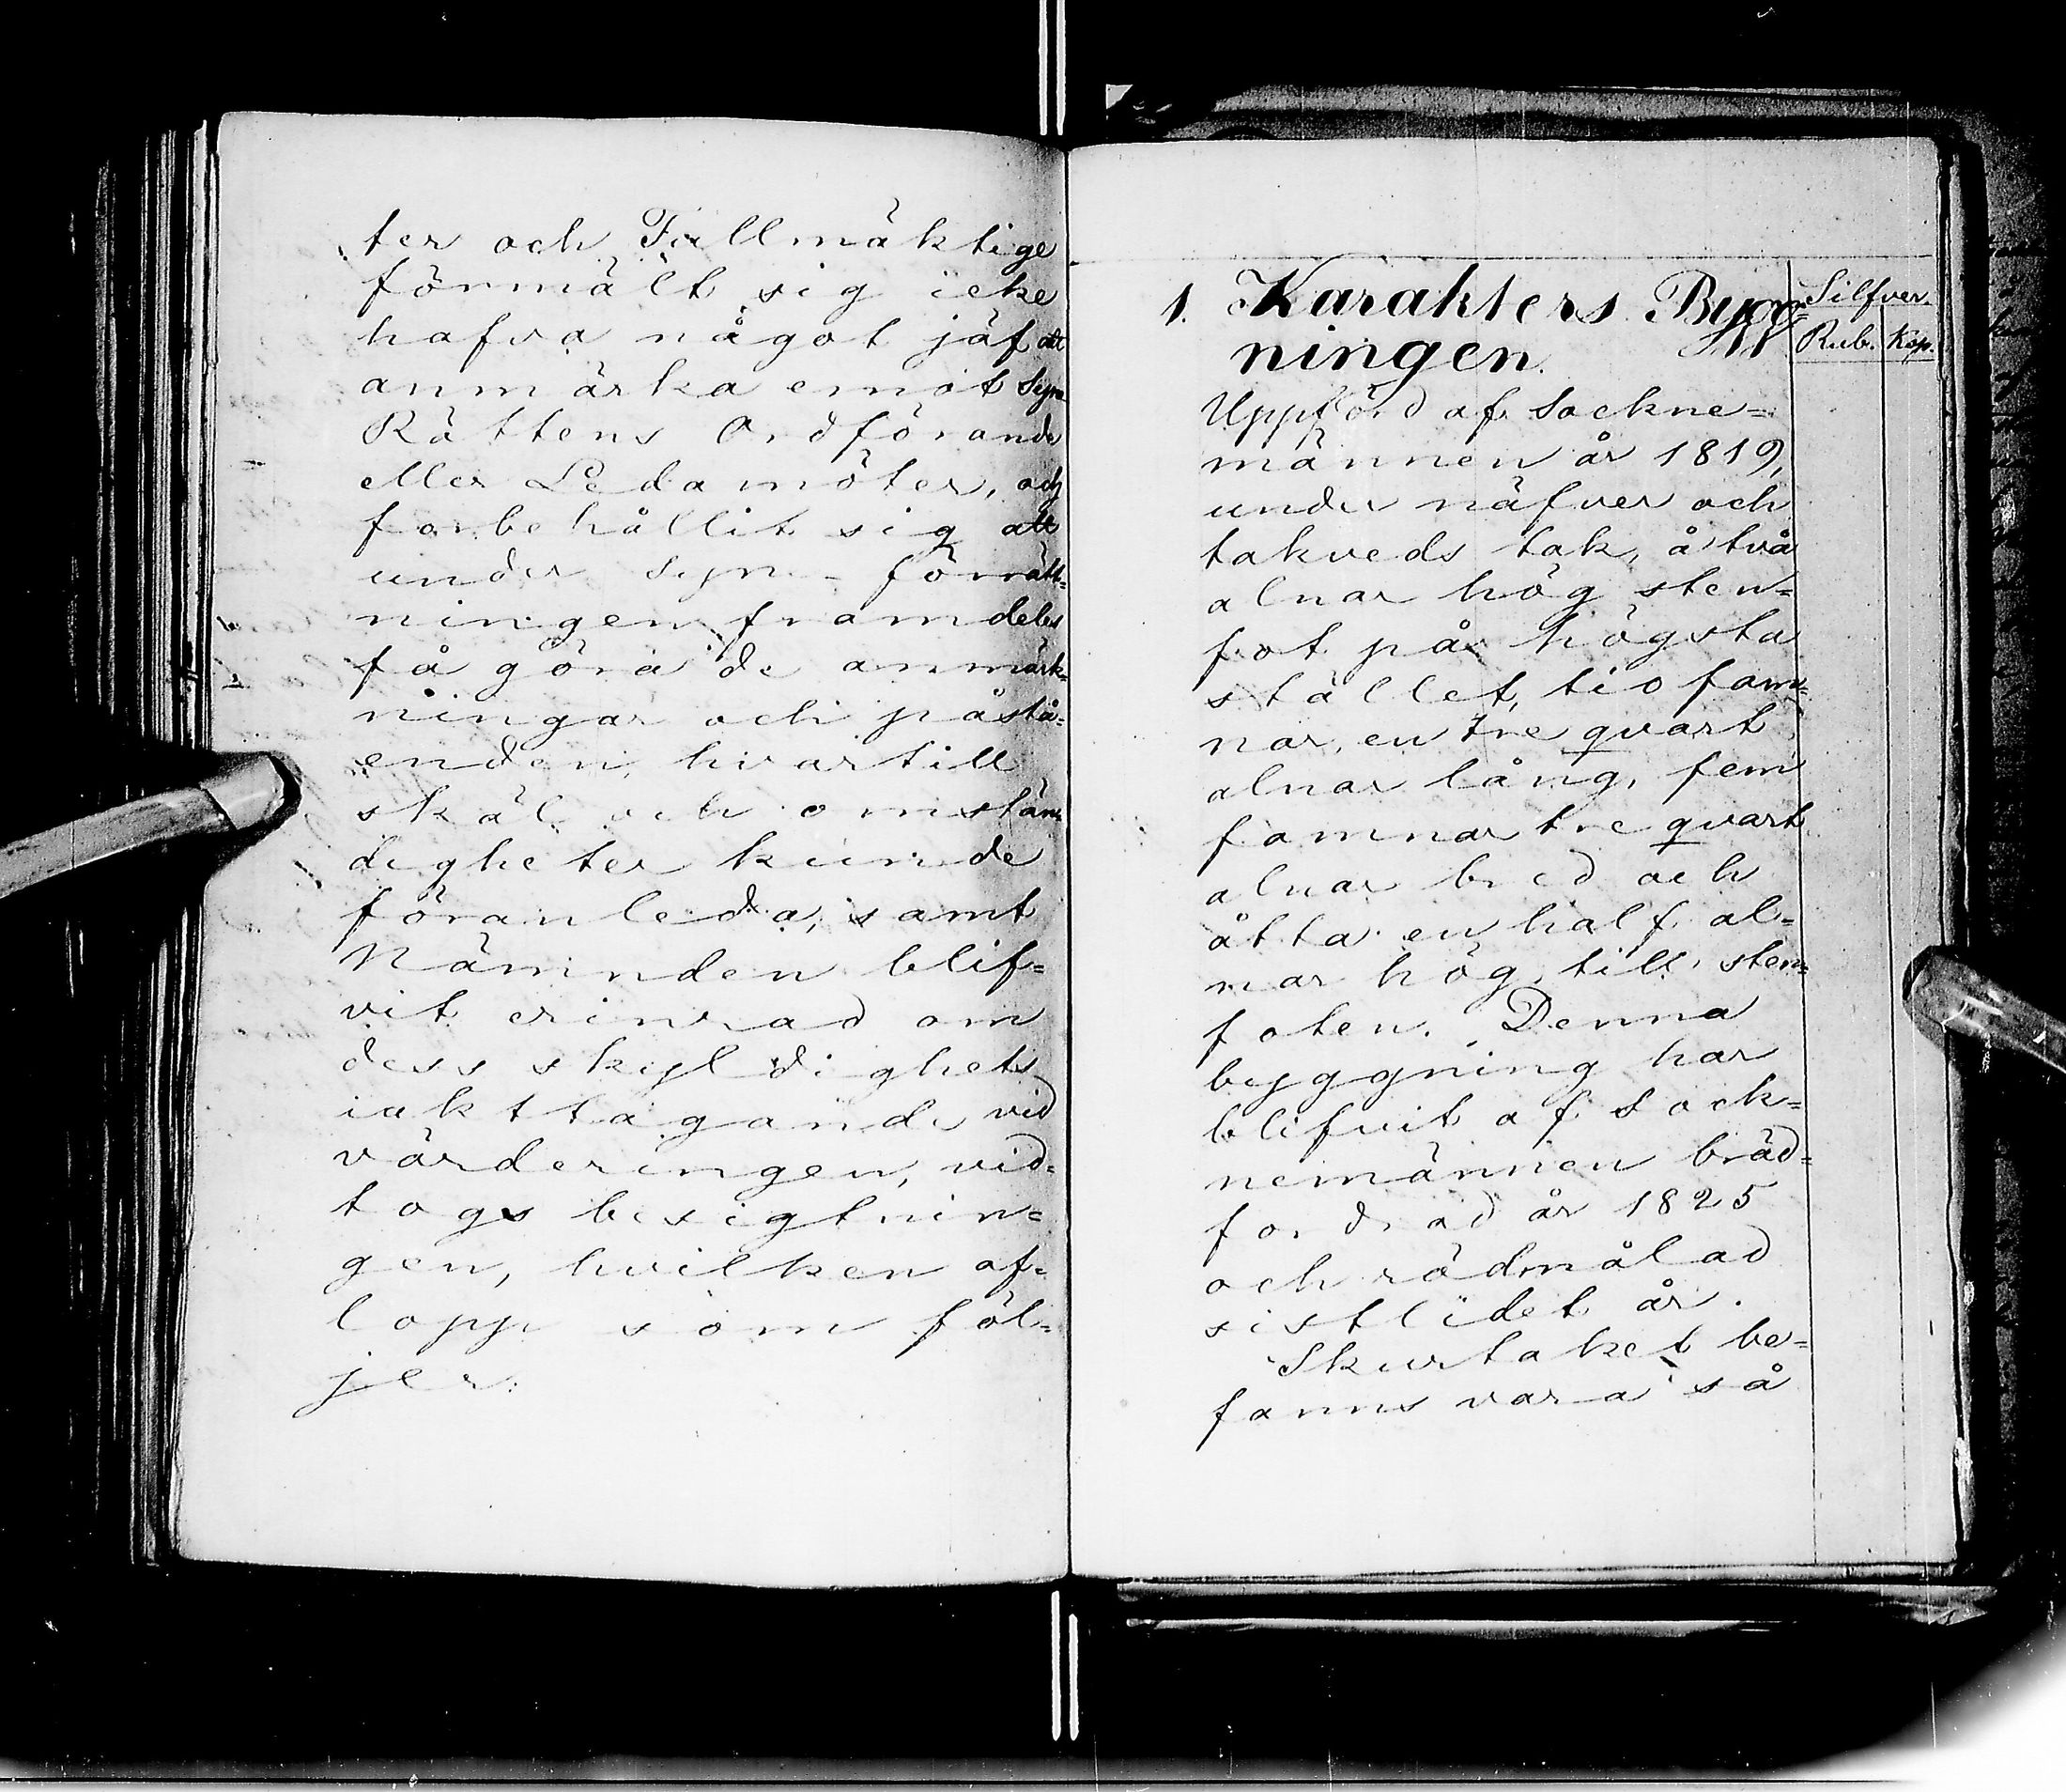 ter och Fullmäktige
förmält sig icke
hafva något jäf att
anmärka emot Syn
Rättens Ordförande
eller Ledamöter, och
forbehållit sig att
under Syn-förrätt=
ningen framdeles
få göra de anmärk=
ningar och påstå=
enden, hvartill
skäl och omstän
digheter kunde
föranleda, samt
Nämnden blif=
vit erinrad om
dess skyldighets
iakttagande vid
värderingen, vid=
togs besigtnin=
gen, hvilken af=
lopp som föl=
jer:
1. Karakters Bygg=
ningen.
Silfver
Rub. Kop.
Uppförd af Sockne=
männen år 1819,
under näfver och
takveds tak, å två
alnar hög sten=
fot på högsta
stället, tio fam=
nar, en tre qvart
alnar lång, fem
famnar tre qvart
alnar bred och
åtta en half al=
nar hög till sten=
foten. Denna
byggning har
blifvit af Sock=
nemännen bräd=
fordrad år 1825
och rödmålad
sistlidet år.
Skurtaket be=
fanns vara så